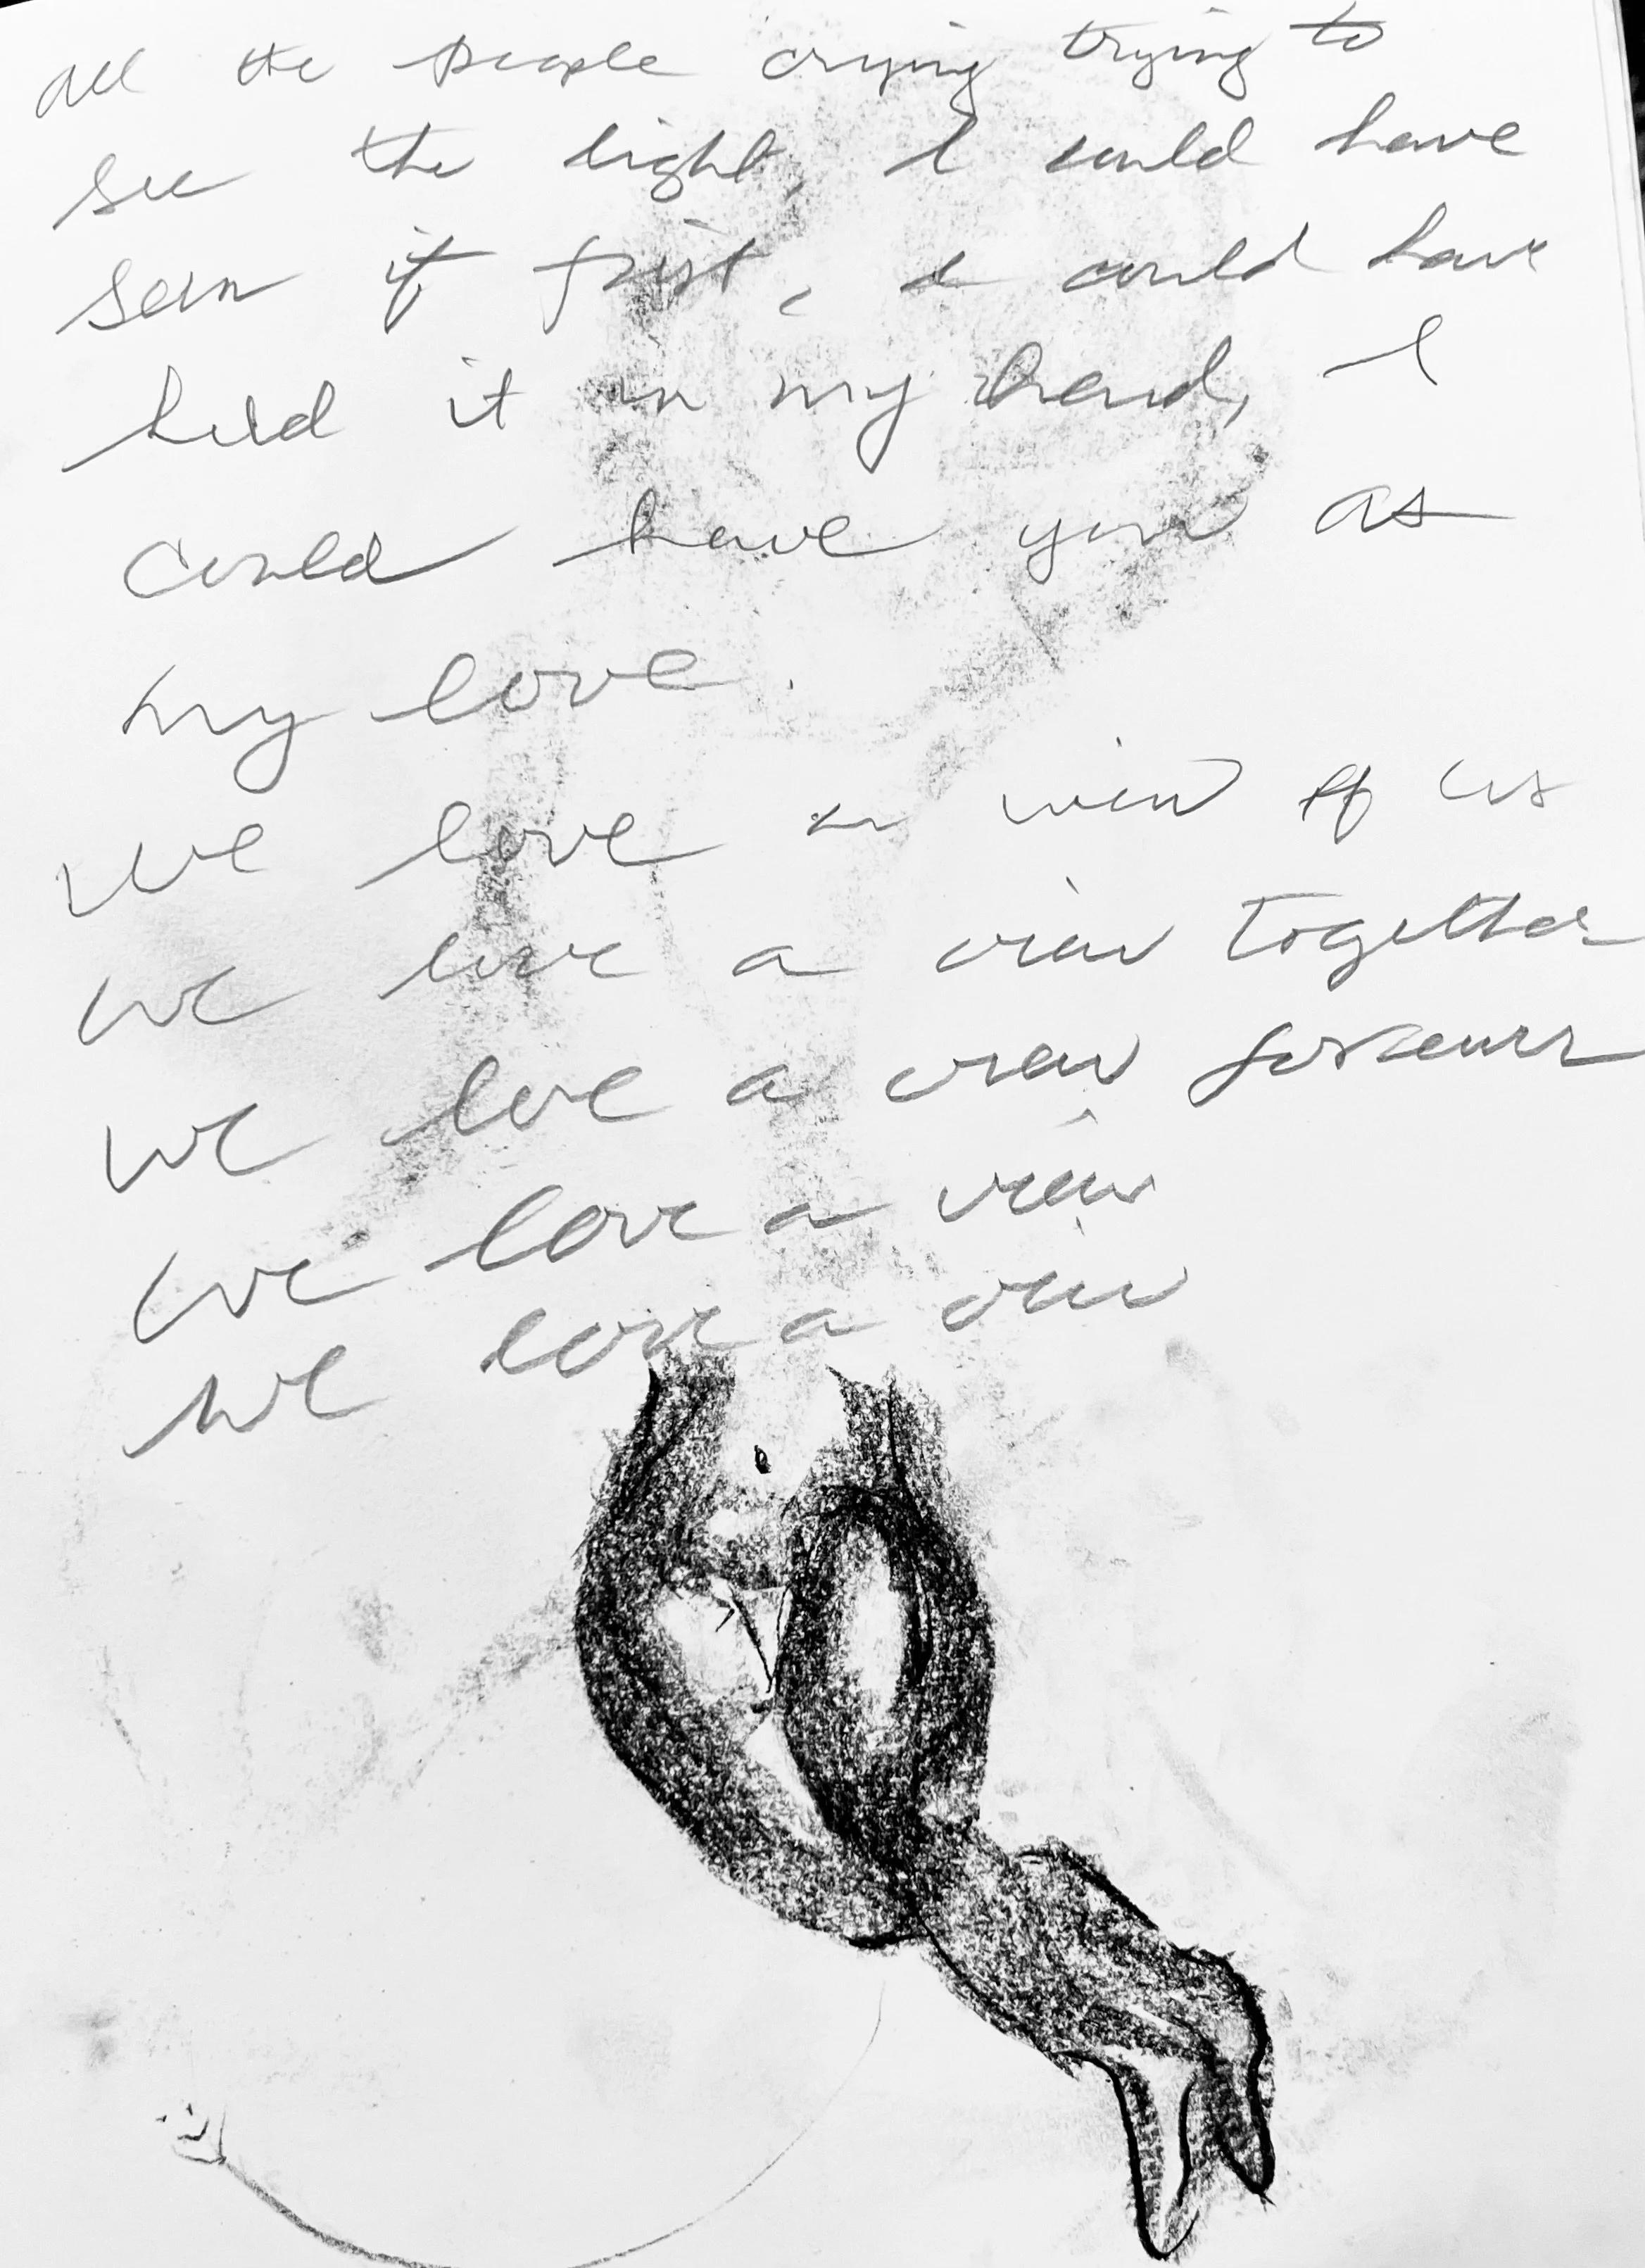 all the people crying trying to
see the light, I could have
seen it first, I could have
held it in my hand, I
could have you as
my love.
we love a view of us
we love a view together
we love a view forever
we love a view
we love a view